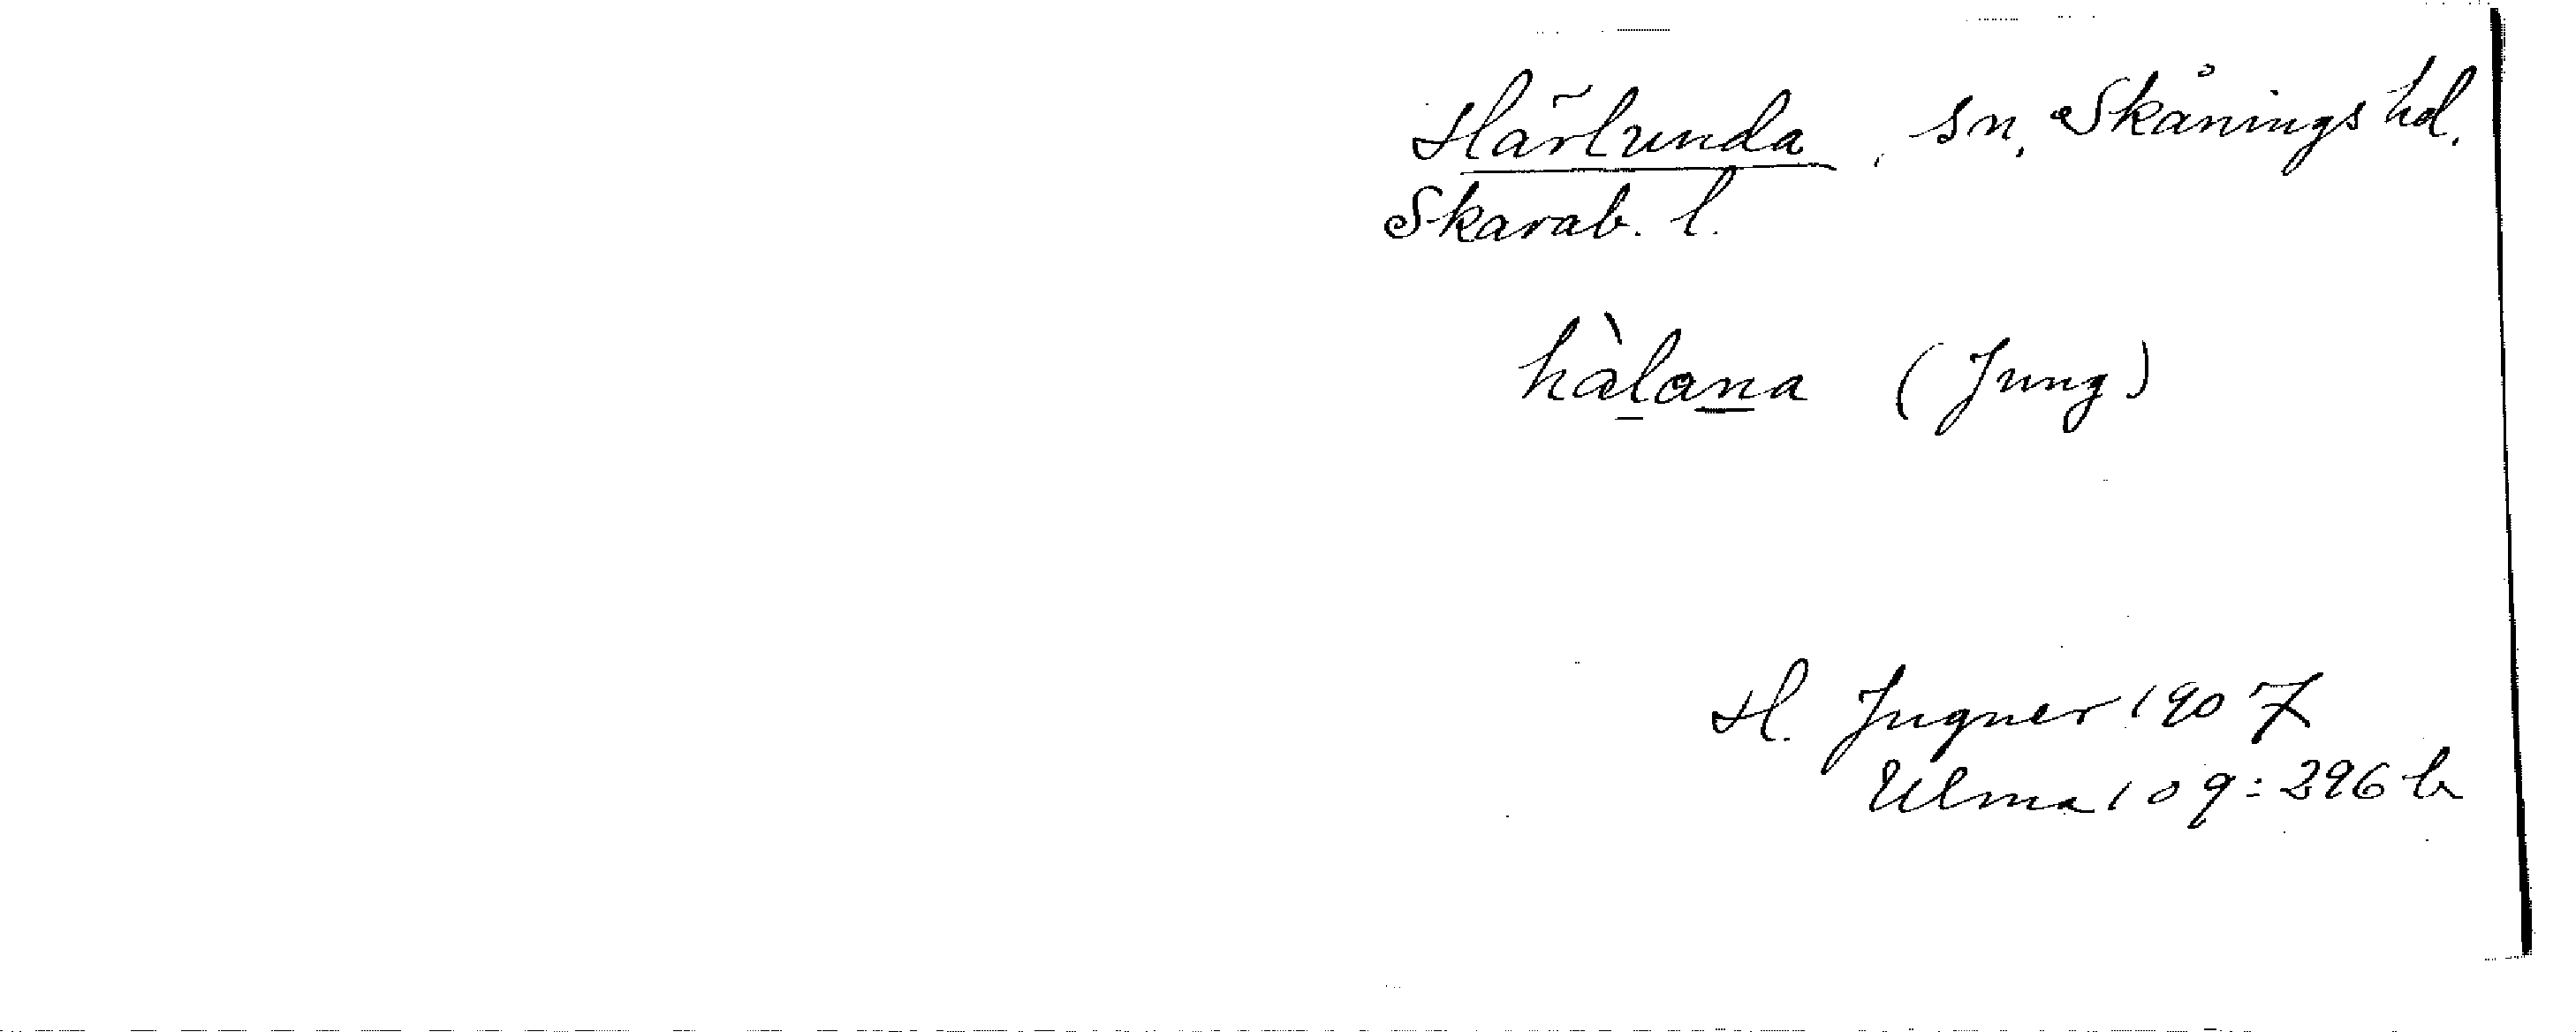 Härlunda, sn, Skånings hd.
Skarab. l.
hàlana (Jung)
H. Jugner 1907
Ulma 109:296 b